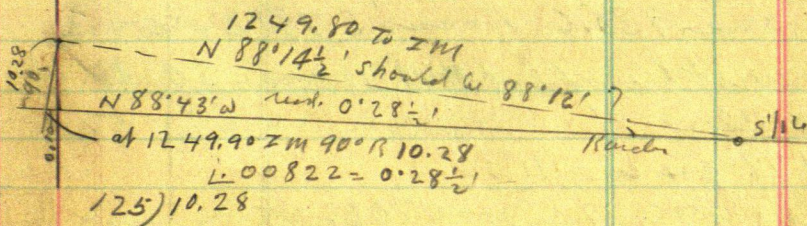 1249.80 To IM
N 88°14½' should be 88°12' ?
10.28
90°
N 88°43'W red. 0°28½'
S 1/16
at 1249.90 IM 90°R 10.28
L.00822 = 0°28½'
125)10.28